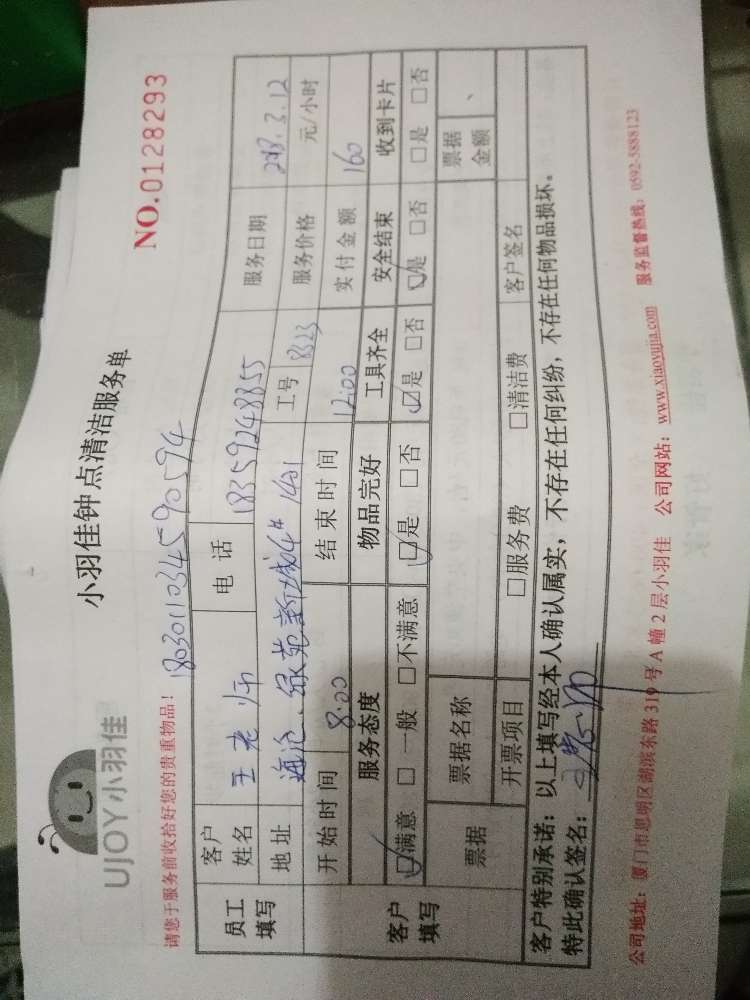 UJOY小羽佳
小羽佳钟点清洁服务单
NO.0128293
请您于服务前收拾好您的贵重物品！
1803011034590594
员工填写
客户姓名 王老师 电话 18359248855 服务日期 2018.3.12
地址 海沧、绿苑新城4# 1401 工号 8323 服务价格 元/小时
开始时间 8:00 结束时间 12:00 实付金额 160
客户填写
服务态度 物品完好 工具齐全 安全结束 收到卡片
☑满意 □一般 □不满意 ☑是 □否 ☑是 □否 ☑是 □否 □是 □否
票据 票据名称 票据金额
开票项目 □服务费 □清洁费 客户签名
客户特别承诺：以上填写经本人确认属实，不存在任何纠纷，不存在任何物品损坏。
特此确认签名：
公司地址：厦门市思明区湖滨东路319号A幢2层小羽佳 公司网站：www.xiaoyujia.com 服务监督热线：0592-5888123